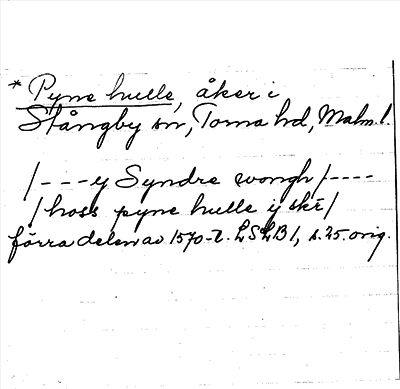 * Pyne hulle, åker i
Stångby sn, Torna hd, Malm. l.
/---y Syndre wongh/----
/hoss pyne hulle ij skr̄/
förra delen av 1570-t. LSLB 1, s. 25. orig.